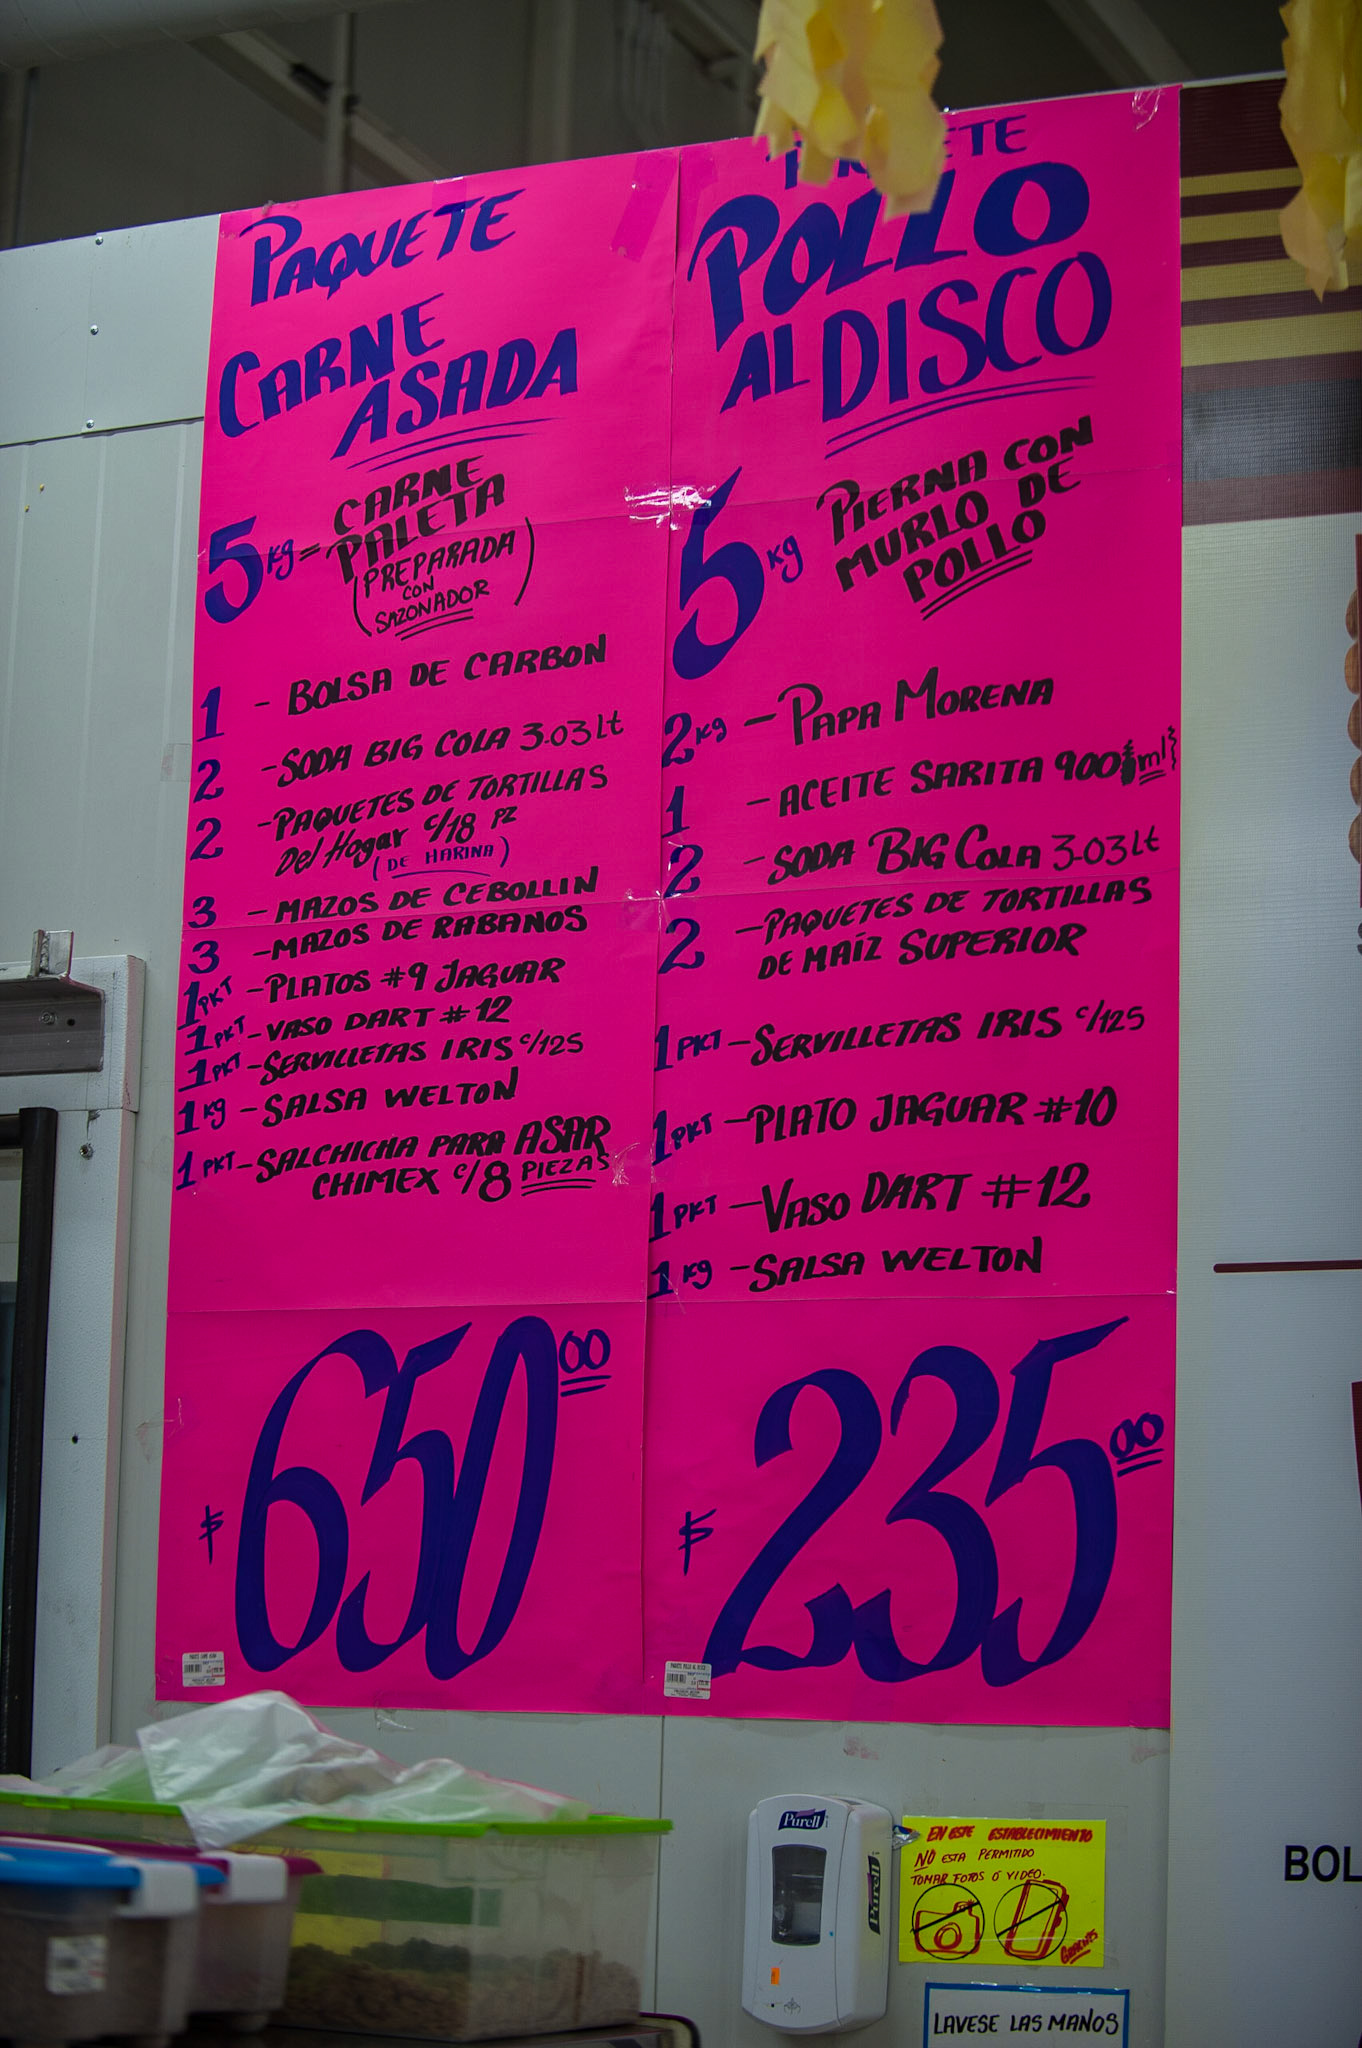 PAQUETE
CARNE
ASADA
5 kg = CARNE
PALETA
(PREPARADA
CON
SAZONADOR)
1 - BOLSA DE CARBON
2 - SODA BIG COLA 3.03 Lt
2 - PAQUETES DE TORTILLAS
Del Hogar c/18 PZ
(DE HARINA)
3 - MAZOS DE CEBOLLIN
3 - MAZOS DE RABANOS
1 PKT - PLATOS #9 JAGUAR
1 PKT - VASO DART #12
1 PKT - SERVILLETAS IRIS c/125
1 kg - SALSA WELTON
1 PKT - SALCHICHA PARA ASAR
CHIMEX c/8 PIEZAS
$ 650 00
POLLO
AL DISCO
5 kg PIERNA CON
MURLO DE
POLLO
2 kg - PAPA MORENA
1 - ACEITE SARITA 900 ml
2 - SODA BIG COLA 3.03 Lt
2 - PAQUETES DE TORTILLAS
DE MAÍZ SUPERIOR
1 PKT - SERVILLETAS IRIS c/125
1 PKT - PLATO JAGUAR #10
1 PKT - VASO DART #12
1 kg - SALSA WELTON
$ 235 00
Purell
Purell
EN ESTE ESTABLECIMIENTO
NO ESTA PERMITIDO
TOMAR FOTOS O VIDEO.
GRACIAS
LAVESE LAS MANOS
BOL